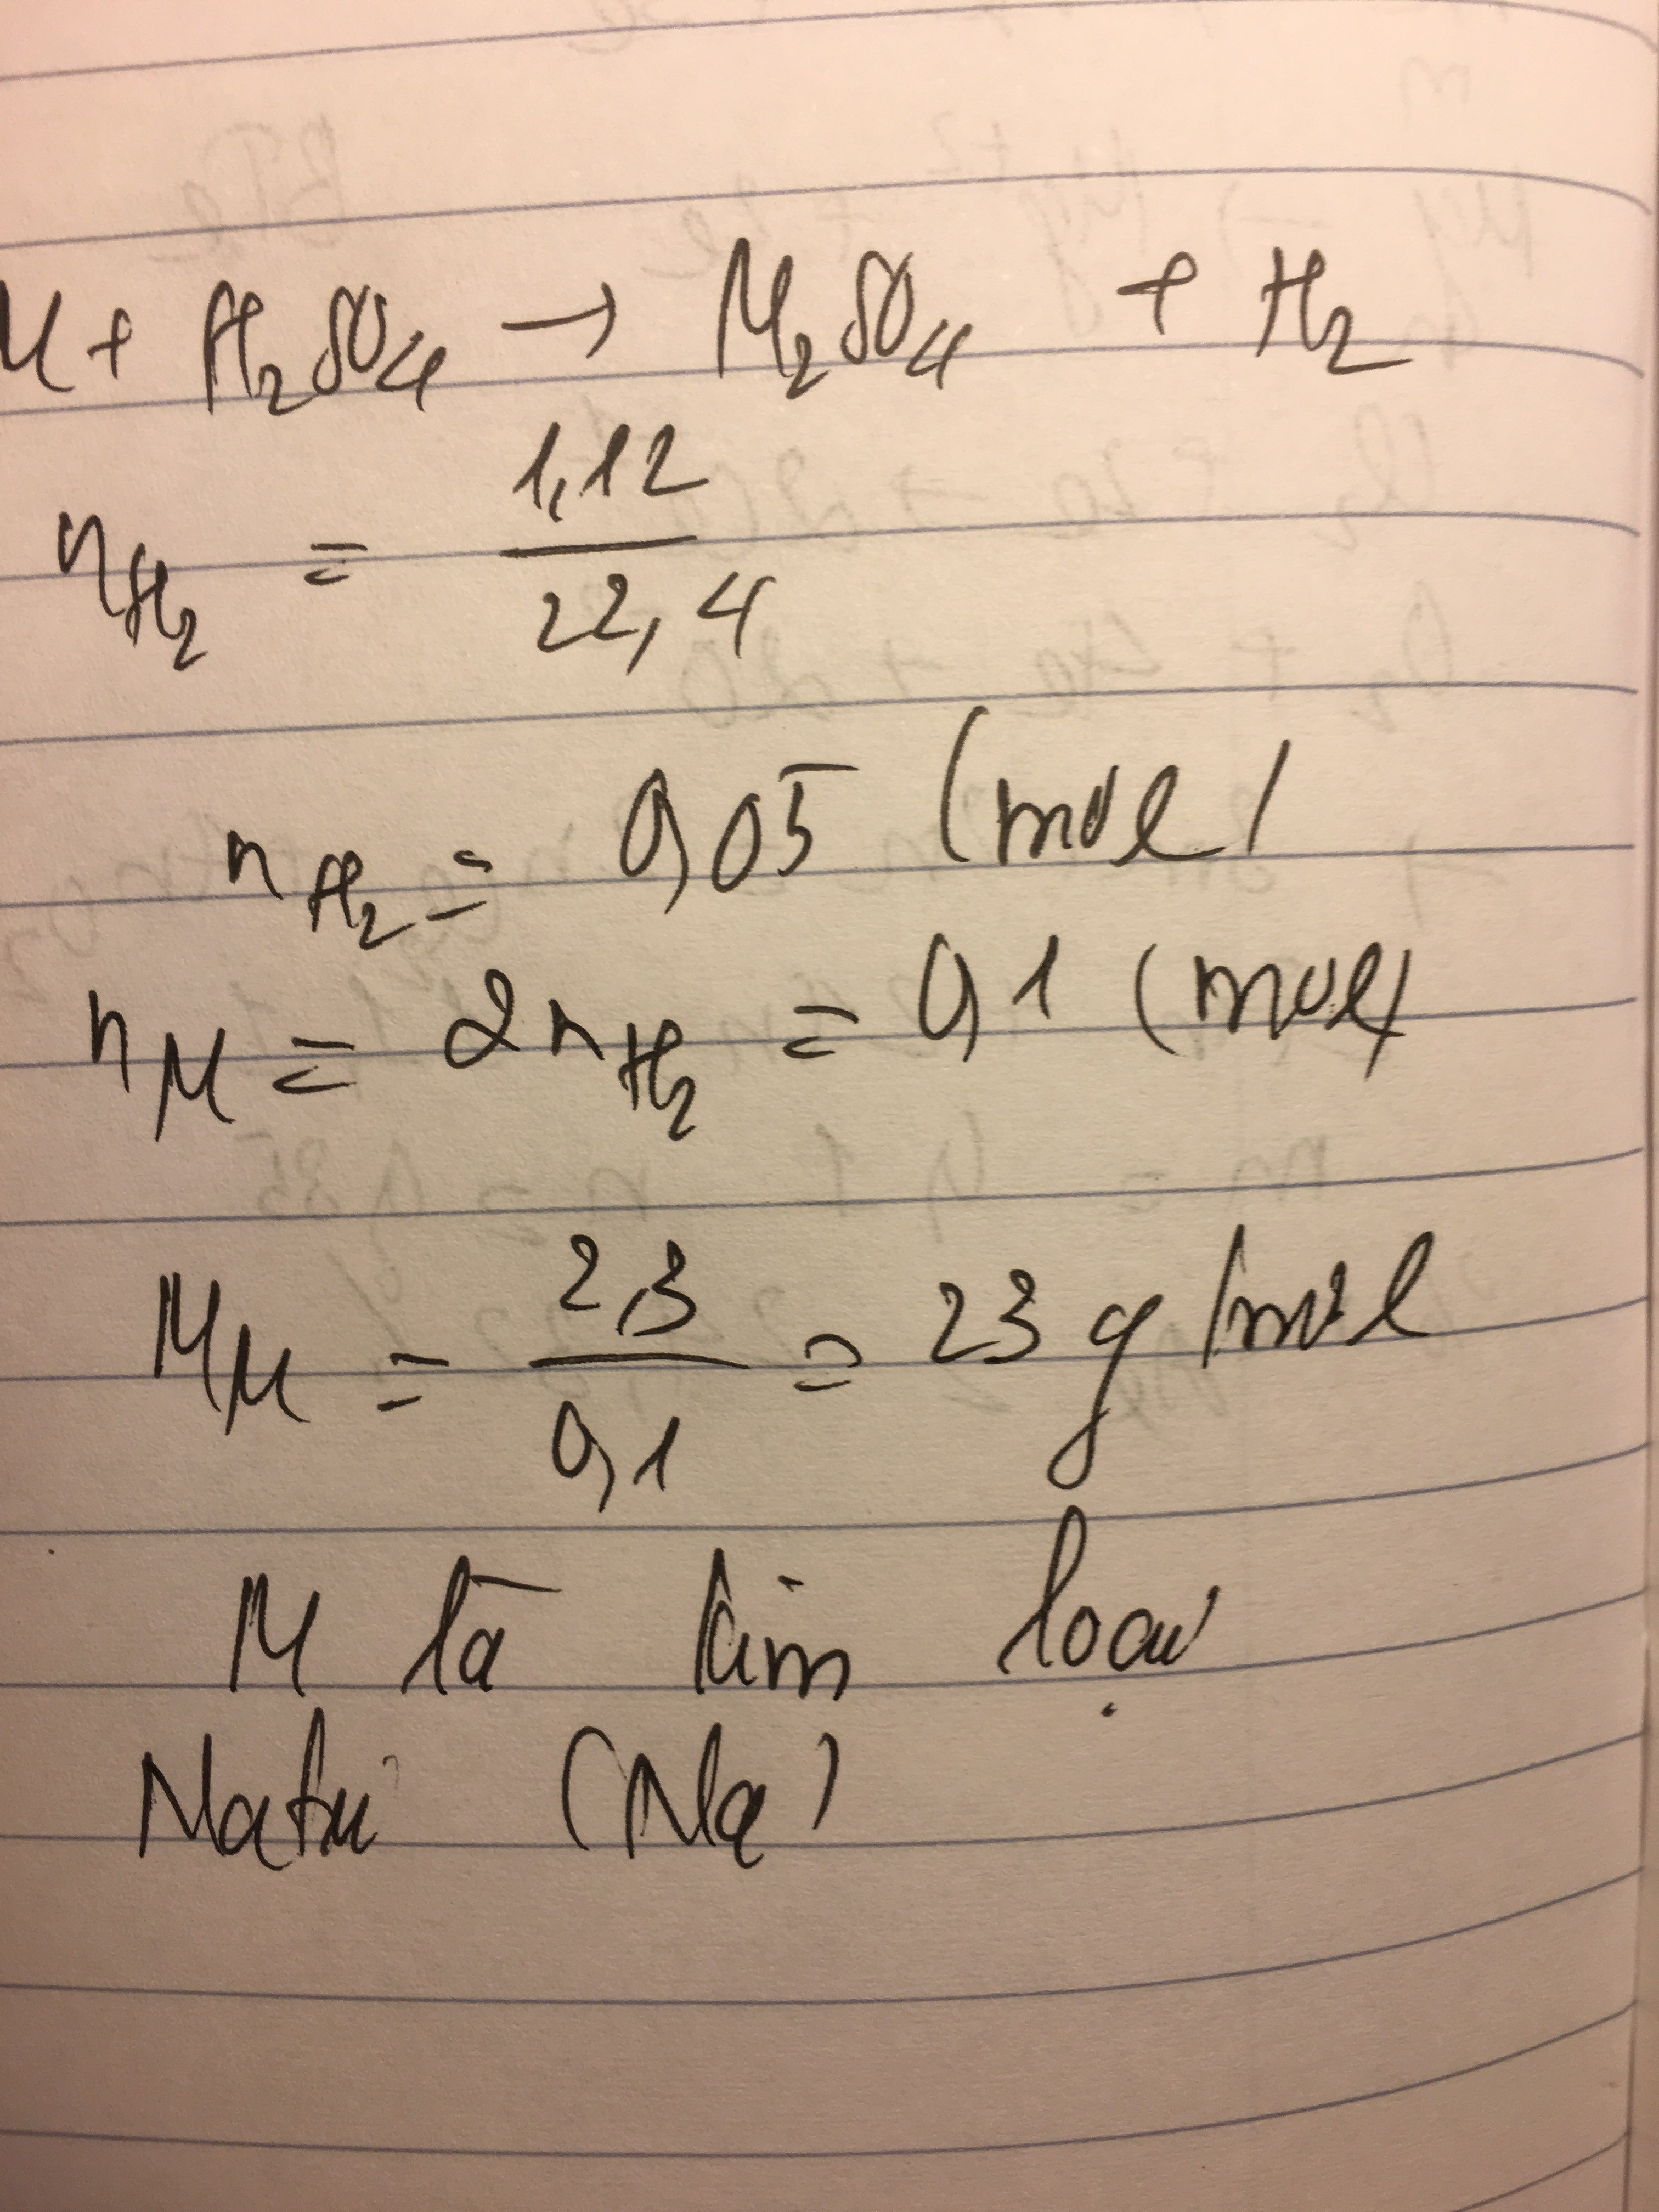 M + H₂SO₄ → M₂SO₄ + H₂
n_H₂ = 1,12 / 22,4
n_H₂ = 0,05 (mol)
n_M = 2n_H₂ = 0,1 (mol)
M_M = 2,3 / 0,1 = 23 g/mol
M là kim loại
Natri (Na)